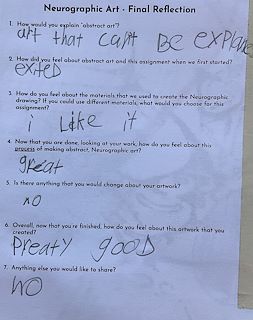 Neurographic Art - Final Reflection
1. How would you explain "abstract art"?
art that can't BE explane
2. How did you feel about abstract art and this assignment when we first started?
exited
3. How do you feel about the materials that we used to create the Neurographic
drawing? If you could use different materials, what would you choose for this
assignment?
i Like it
4. Now that you are done, looking at your work, how do you feel about this
process of making abstract, Neurographic art?
great
5. Is there anything that you would change about your artwork?
NO
6. Overall, now that you're finished, how do you feel about this artwork that you
created?
Preaty gooD
7. Anything else you would like to share?
NO